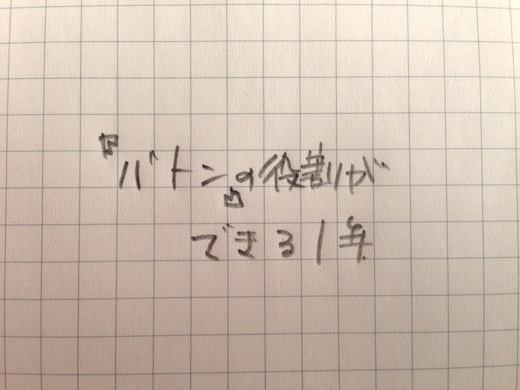 『バトン』の役割りが
できる1年